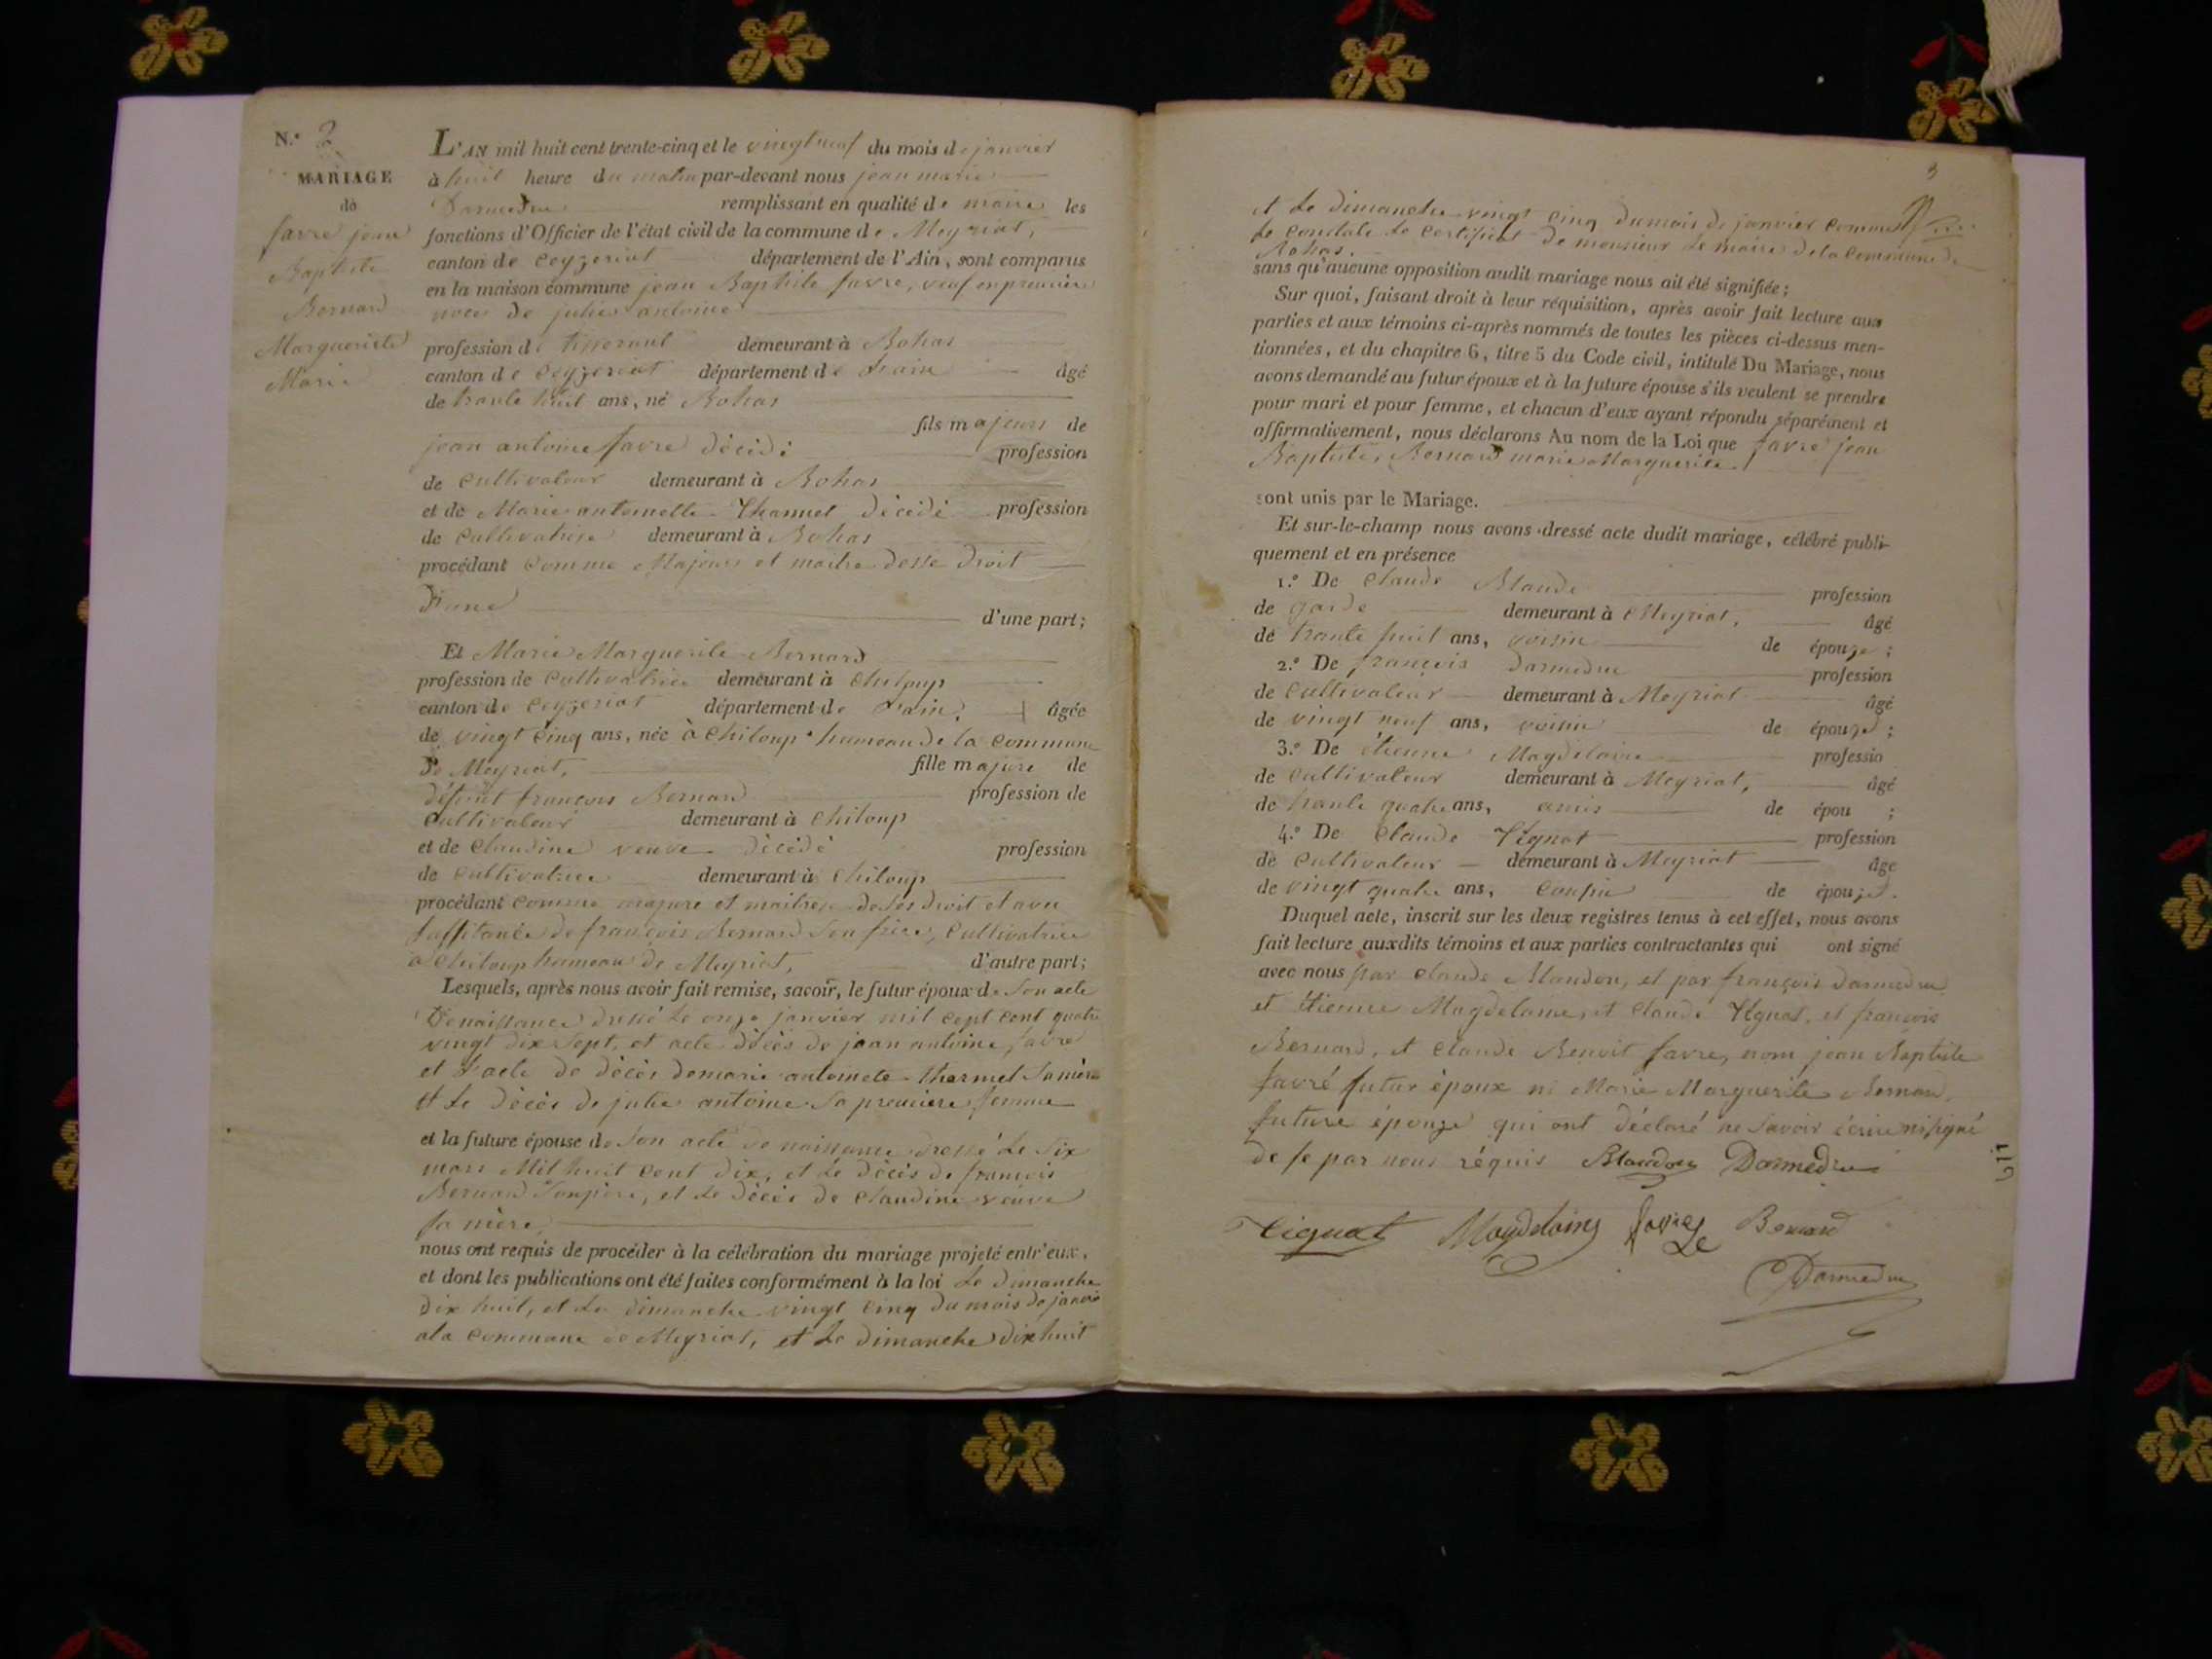 N.° 2
MARIAGE
de
favre jean
Baptiste
Bernard
Margueritte
Marie
L'AN mil huit cent trente-cinq et le vingt neuf du mois de janvier
à huit heure du matin par-devant nous jean marie
Darmedru remplissant en qualité de maire les
fonctions d'Officier de l'état civil de la commune de Meyriat,
canton de Ceyzeriat département de l'Ain, sont comparus
en la maison commune jean Baptiste favre, veuf en premiere
noces de julie antoine
profession de tisserant demeurant à Rohas
canton de Ceyzeriat département de L'ain âgé
de trante huit ans, né Rohas
fils majeurs de
jean antoine favre décédé profession
de cultivateur demeurant à Rohas
et de Marie antoinette Thermet décédé profession
de cultivatrice demeurant à Rohas
procédant comme Majeurs et maitre desse droit
D'une
d'une part;
Et Marie Marguerite Bernard
profession de cultivatrice demeurant à
canton de Ceyzeriat département de L'ain, âgée
de vingt cinq ans, née à Chiloup hameau de la commune
de Meyriat, fille majure de
défunt françois Bernard profession de
cultivateur demeurant à Chiloup
et de Claudine veuve décédé profession
de cultivatrice demeurant à Chiloup
procédant comme majure et maitresse de ses droit et avec
l'assitance de françois Bernard son frère, cultivatrice
a Chiloup hameau de Meyriat, d'autre part;
Lesquels, après nous avoir fait remise, savoir, le futur époux de Son acte
De naissance dressé Le onze janvier mil sept cent quatre
vingt dix sept, et acte décès de jean antoine favre
et L'acte de décès de marie antoinete thermet sa mère
et Le décès de julie antoine sa premiere femme
et la future épouse de Son acte de naissance dressé Le Six
mars Mil huit cent dix, et Le décès de françois
Bernard Son père, et Le décès de Claudine veuve
sa mère
nous ont requis de procéder à la célébration du mariage projeté entr'eux,
et dont les publications ont été faites conformément à la loi Le dimanche
dix huit, et Le dimanche vingt cinq du mois de janvier
a la commune de Meyriat, et Le dimanche dix huit
3
et Le dimanche vingt cinq du mois de janvier comme
Le constate Le certificat de monsieur Le maire de la commune de
Rohas.
sans qu'aucune opposition audit mariage nous ait été signifiée;
Sur quoi, faisant droit à leur réquisition, après avoir fait lecture aux
parties et aux témoins ci-après nommés de toutes les pièces ci-dessus men-
tionnées, et du chapitre 6, titre 5 du Code civil, intitulé Du Mariage, nous
avons demandé au futur époux et à la future épouse s'ils veulent se prendre
pour mari et pour femme, et chacun d'eux ayant répondu séparément et
affirmativement, nous déclarons Au nom de la Loi que favre jean
Baptiste, Bernard marie Marguerite
sont unis par le Mariage.
Et sur-le-champ nous avons dressé acte dudit mariage, célébré publi-
quement et en présence
1.° De Claude Blande profession
de garde demeurant à Meyriat, âgé
de trante huit ans, voisin de épouze;
2.° De françois Darmedru profession
de cultivateur demeurant à Meyriat âgé
de vingt neuf ans, voisin de épouze;
3.° De étienne Magdelaine professio
de cultivateur demeurant à Meyriat, âgé
de trante quatre ans, amis de épou ;
4.° De Claude Tignat profession
de cultivateur demeurant à Meyriat âge
de vingt quatre ans, cousin de épouze.
Duquel acte, inscrit sur les deux registres tenus à cet effet, nous avons
fait lecture auxdits témoins et aux parties contractantes qui ont signé
avec nous par Claude Blandon, et par françois Darmedru
et étienne Magdelaine, et Claude Tignat, et françois
Bernard, et Claude Benoit favre, nom jean Baptiste
favré futur époux ni Marie Marguerite Bernard
future épouze qui ont déclaré ne savoir écrire ni signé
de se par nous réquis Blandon Darmedru
Tignat Magdelaine favre Bernard
Darmedru